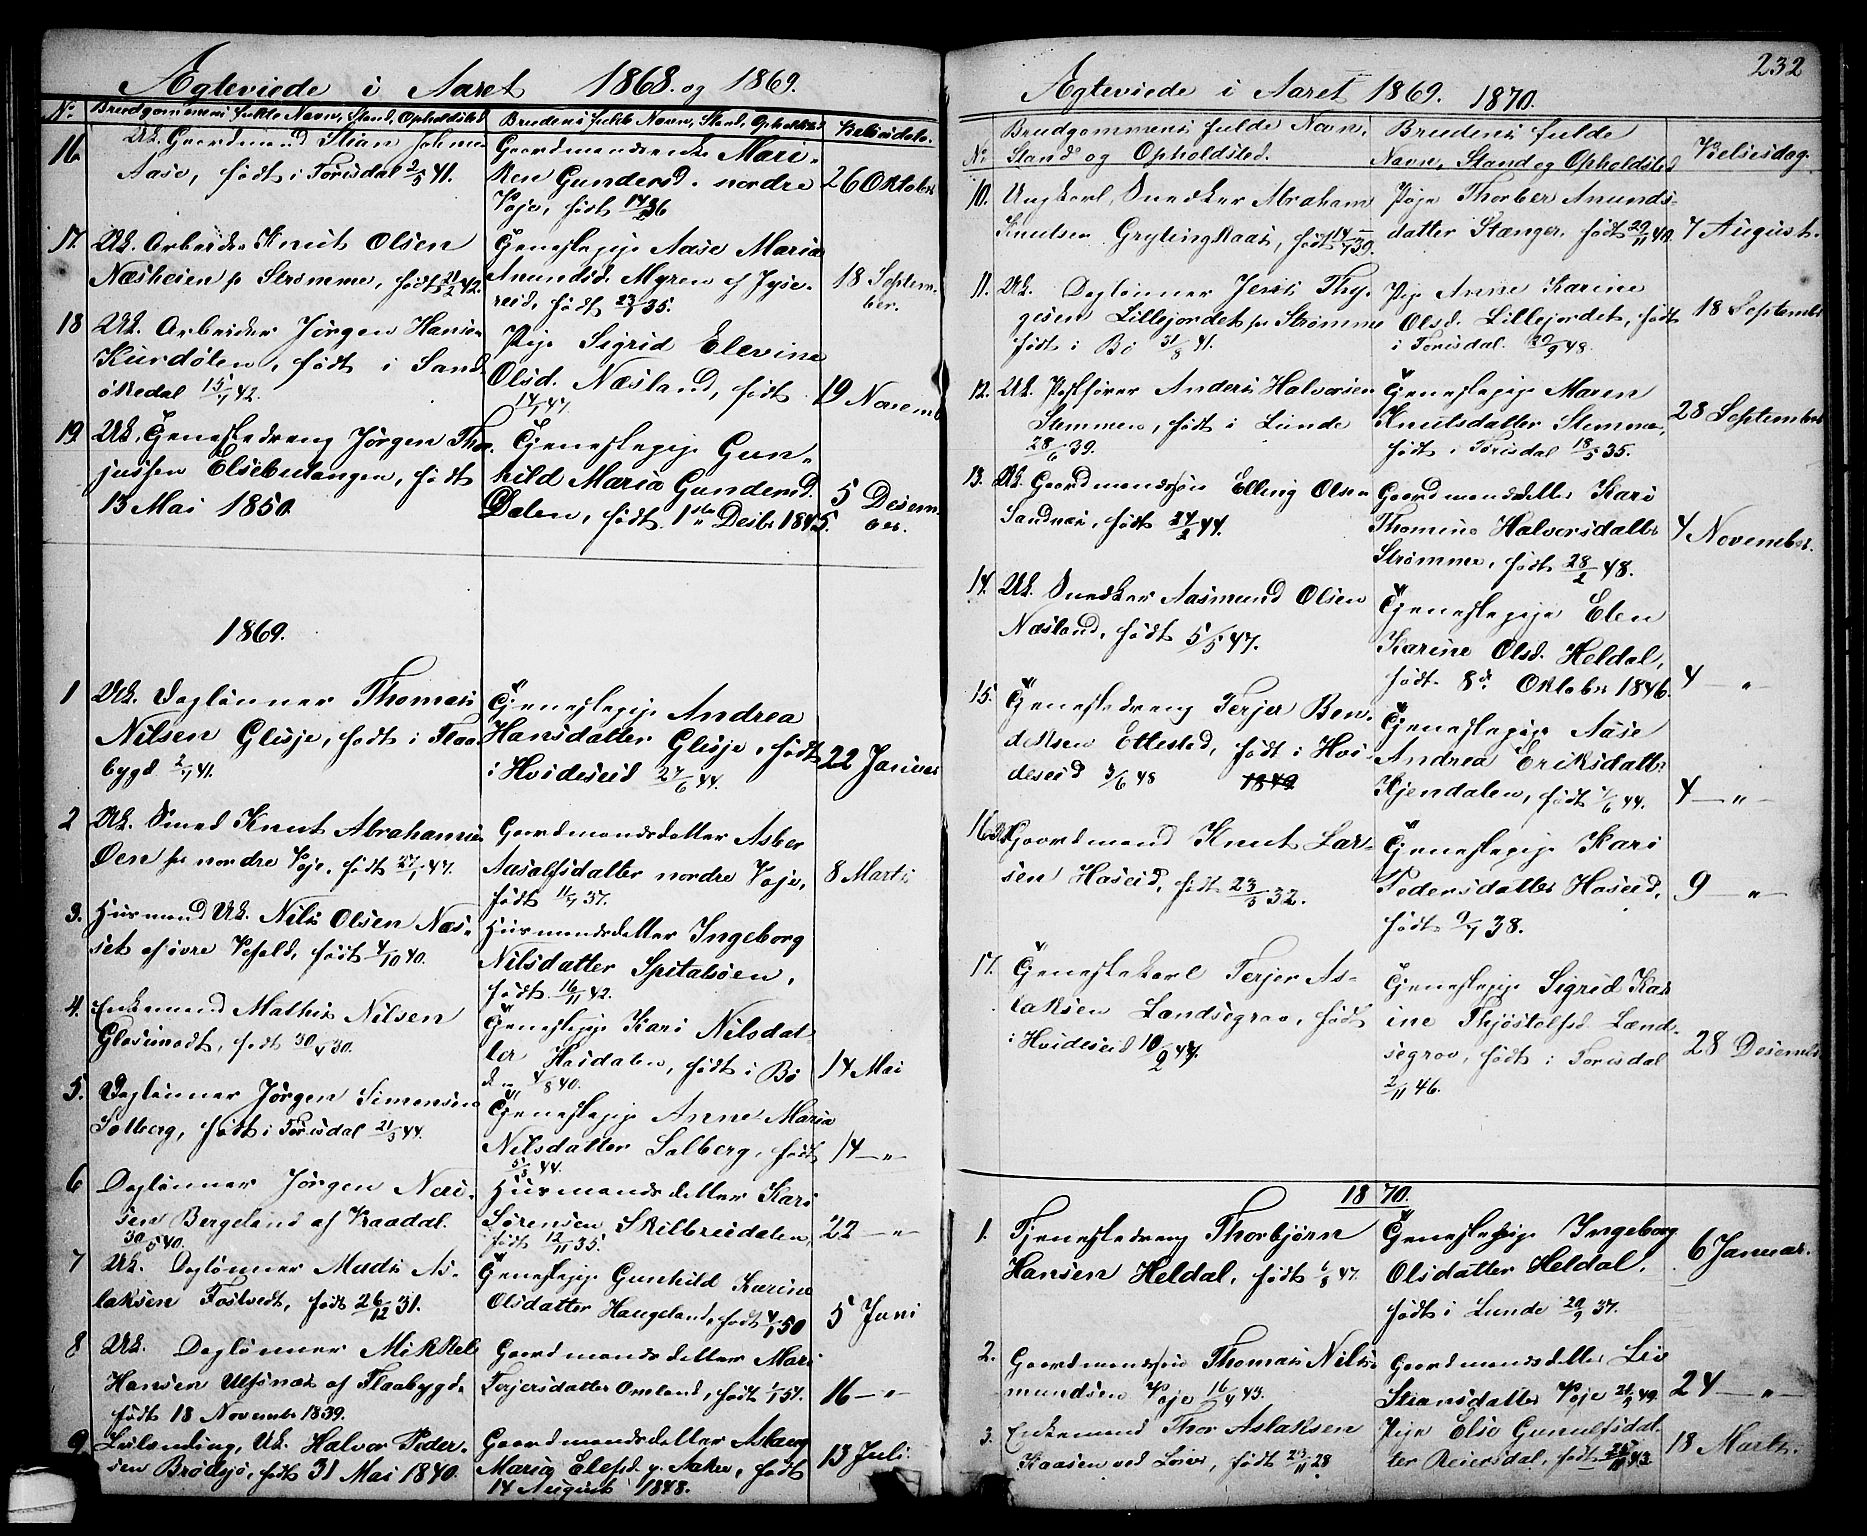 Ægteviede i Aaret 1868 og 1869.
No. Brudgommens fulde Navn, Stand, Opholdsted Brudens fulde Navn, Stand, Opholdsted Vielsesdato.
16. Uk. Gaardmand Stian Johnsen
Aase, født i Torisdal 2/5 41.
Gaardmandsenke Mari-
ken Gundersd. nordre
Vaje, født 14/2 36
26 Oktober
17. Uk. Arbeider Knut Olsen
Næsheien p. Strømme, født 21/2 42.
Tjenestepige Aase Maria
Anundsd. Myren af Jyse-
reid, født 23/1 35.
18 Septem-
ber.
18 Uk. Arbeider Jörgen Hansen
Kurdölen, født i Sand-
økedal 15/1 42.
Pige Sigrid Elevine
Olsd. Næsland, født
14/1 47.
19 Novemb
19. Uk. Tjenestedreng Jörgen Tho-
jussen Elsebutangen, født
13 Mai 1850.
Tjenestepige Gun-
hild Maria Gundersd.
Dalen, født 1ste Desbr 1845.
5 Desem-
ber.
1869.
1 Uk. Daglönner Thomas
Nilsen Glisje, født i Flaa-
bygd 2/1 41.
Tjenestepige Andrea
Hansdatter Glisje, født
i Hvideseid 27/6 44.
22 Januar
2 Uk. Smed Knut Abrahamsen
Öen pr nordre Vaje, født 27/1 47.
Gaardmandsdatter Asber
Aasolfsdatter nordre Vaje,
født 11/7 37.
8 Marts
3. Husmand Uk. Nils Olsen Næs-
set af övre Vefald, født 4/10 40.
Husmandsdatter Ingeborg
Nilsdatter Spitalsöen,
født 16/11 42.
4. Enkemand Mathis Nilsen
Glosimodt, født 30/4 30.
Tjenestepige Kari Nilsdat-
ter Hasdalen, født i Bö
4/8 40.
14 Mai
5. Daglönner Jörgen Simonsen
Solberg, født i Torisdal 21/3 44.
Tjenestepige Anne Maria
Nilsdatter Solberg, født
5/3 44.
14 — " —
6 Daglönner Jörgen Neri-
sen Bergeland af Kraadal.
30/5 40.
Husmandsdatter Kari
Sörensen Skilbreidalen,
født 12/11 35.
22 — " —
7 Uk. Daglönner Mads As-
laksen Tostvedt, født 26/12 31.
Tjenestepige Gunhild Karine
Olsdatter Haugeland, født 4/1 50
5 Juni
8 Uk. Daglönner Mikkel
Hansen Ulfsnæs af Flaabygd,
født 18 November 1839.
Gaardmandsdatter Mari
Terjersdatter Omland, født 1/1 51.
16 — " —
9 Leilending, Uk. Halvor Peder-
sen Brödsjö, født 31 Mai 1840.
Gaardmandsdatter Asberg
Maria Elefsd. p. Aaker, født
14 August 1848.
13 Juli.
232
Ægteviede i Aaret 1869. 1870.
No. Brudgommens fulde Navn,
Stand og Opholdsted.
Brudens fulde
Navn, Stand og Opholdsted
Vielsesdag.
10. Ungkarl, Snedker Abraham
Knutsen Grytingkaas, født 14/1 39.
Pige Thorber Anunds-
datter Stænger, født 29/11 40.
7 August.
11. Uk. Daglönner Jens Thy-
gesen Lillejordet pr Strømme
født i Bö 31/8 41.
Pige Anne Karine
Olsd. Lillejordet, født
i Torisdal. 30/9 48.
18 September
12. Uk. Postförer Anders Halvorsen
Stemmen, født i Lunde
28/6 39.
Tjenestepige Maren
Knutsdatter Stemmen,
født i Torisdal 18/5 35.
28 September
13. Uk. Gaardmandssön Elling Olsen
Sandnæs, født 24/2 44.
Gaardmandsdatter Kari
Thomine Halvorsdatter
Strømme, født 28/2 48.
4 November.
14. Uk. Snedker Aasmund Olsen
Næsland, født 5/5 47.
Tjenestepige Elen
Karine Olsd. Heldal,
født 8de Oktober 1846.
4 — " —
15. Tjenestedreng Terjer Ben-
diksen Ettestad, født i Hvi-
deseid 3/6 48 1849
Tjenestepige Aase
Andrea Eriksdatter
Kjendalen, født 7/6 44.
4 — " —
16. Uk. Gaardmand Knut Lar-
sen Haseid, født 23/3 32.
Tjenestepige Kari
Pedersdatter Haseid,
født 9/1 38.
9 — " —
17. Tjenestekarl Terjer As-
laksen Landsegrav, født
i Hvideseid 10/2 47.
Tjenestepige Sigrid Kar-
ine Thjöstolfsd Land-
segrav, født i Torisdal
2/11 46.
28 Desember
1870.
1. Tjenestedreng Thorbjörn
Hansen Heldal, født 6/8 47.
Tjenestepige Ingeborg
Olsdatter Heldal,
født i Lunde 20/9 37.
6 Januar.
2. Gaardmandssön Thomas Nils-
mundsen Vaje 16/4 43.
Gaardmandsdatter Liv
Stiansdatter Vaje 49.
24 — " —
3. Enkemand Thor Aslaksen
Kaasen ved Loier, født 23/11 28
Pige Else Gunulfsdat-
ter Reiersdal, født 43.
18 Marts.